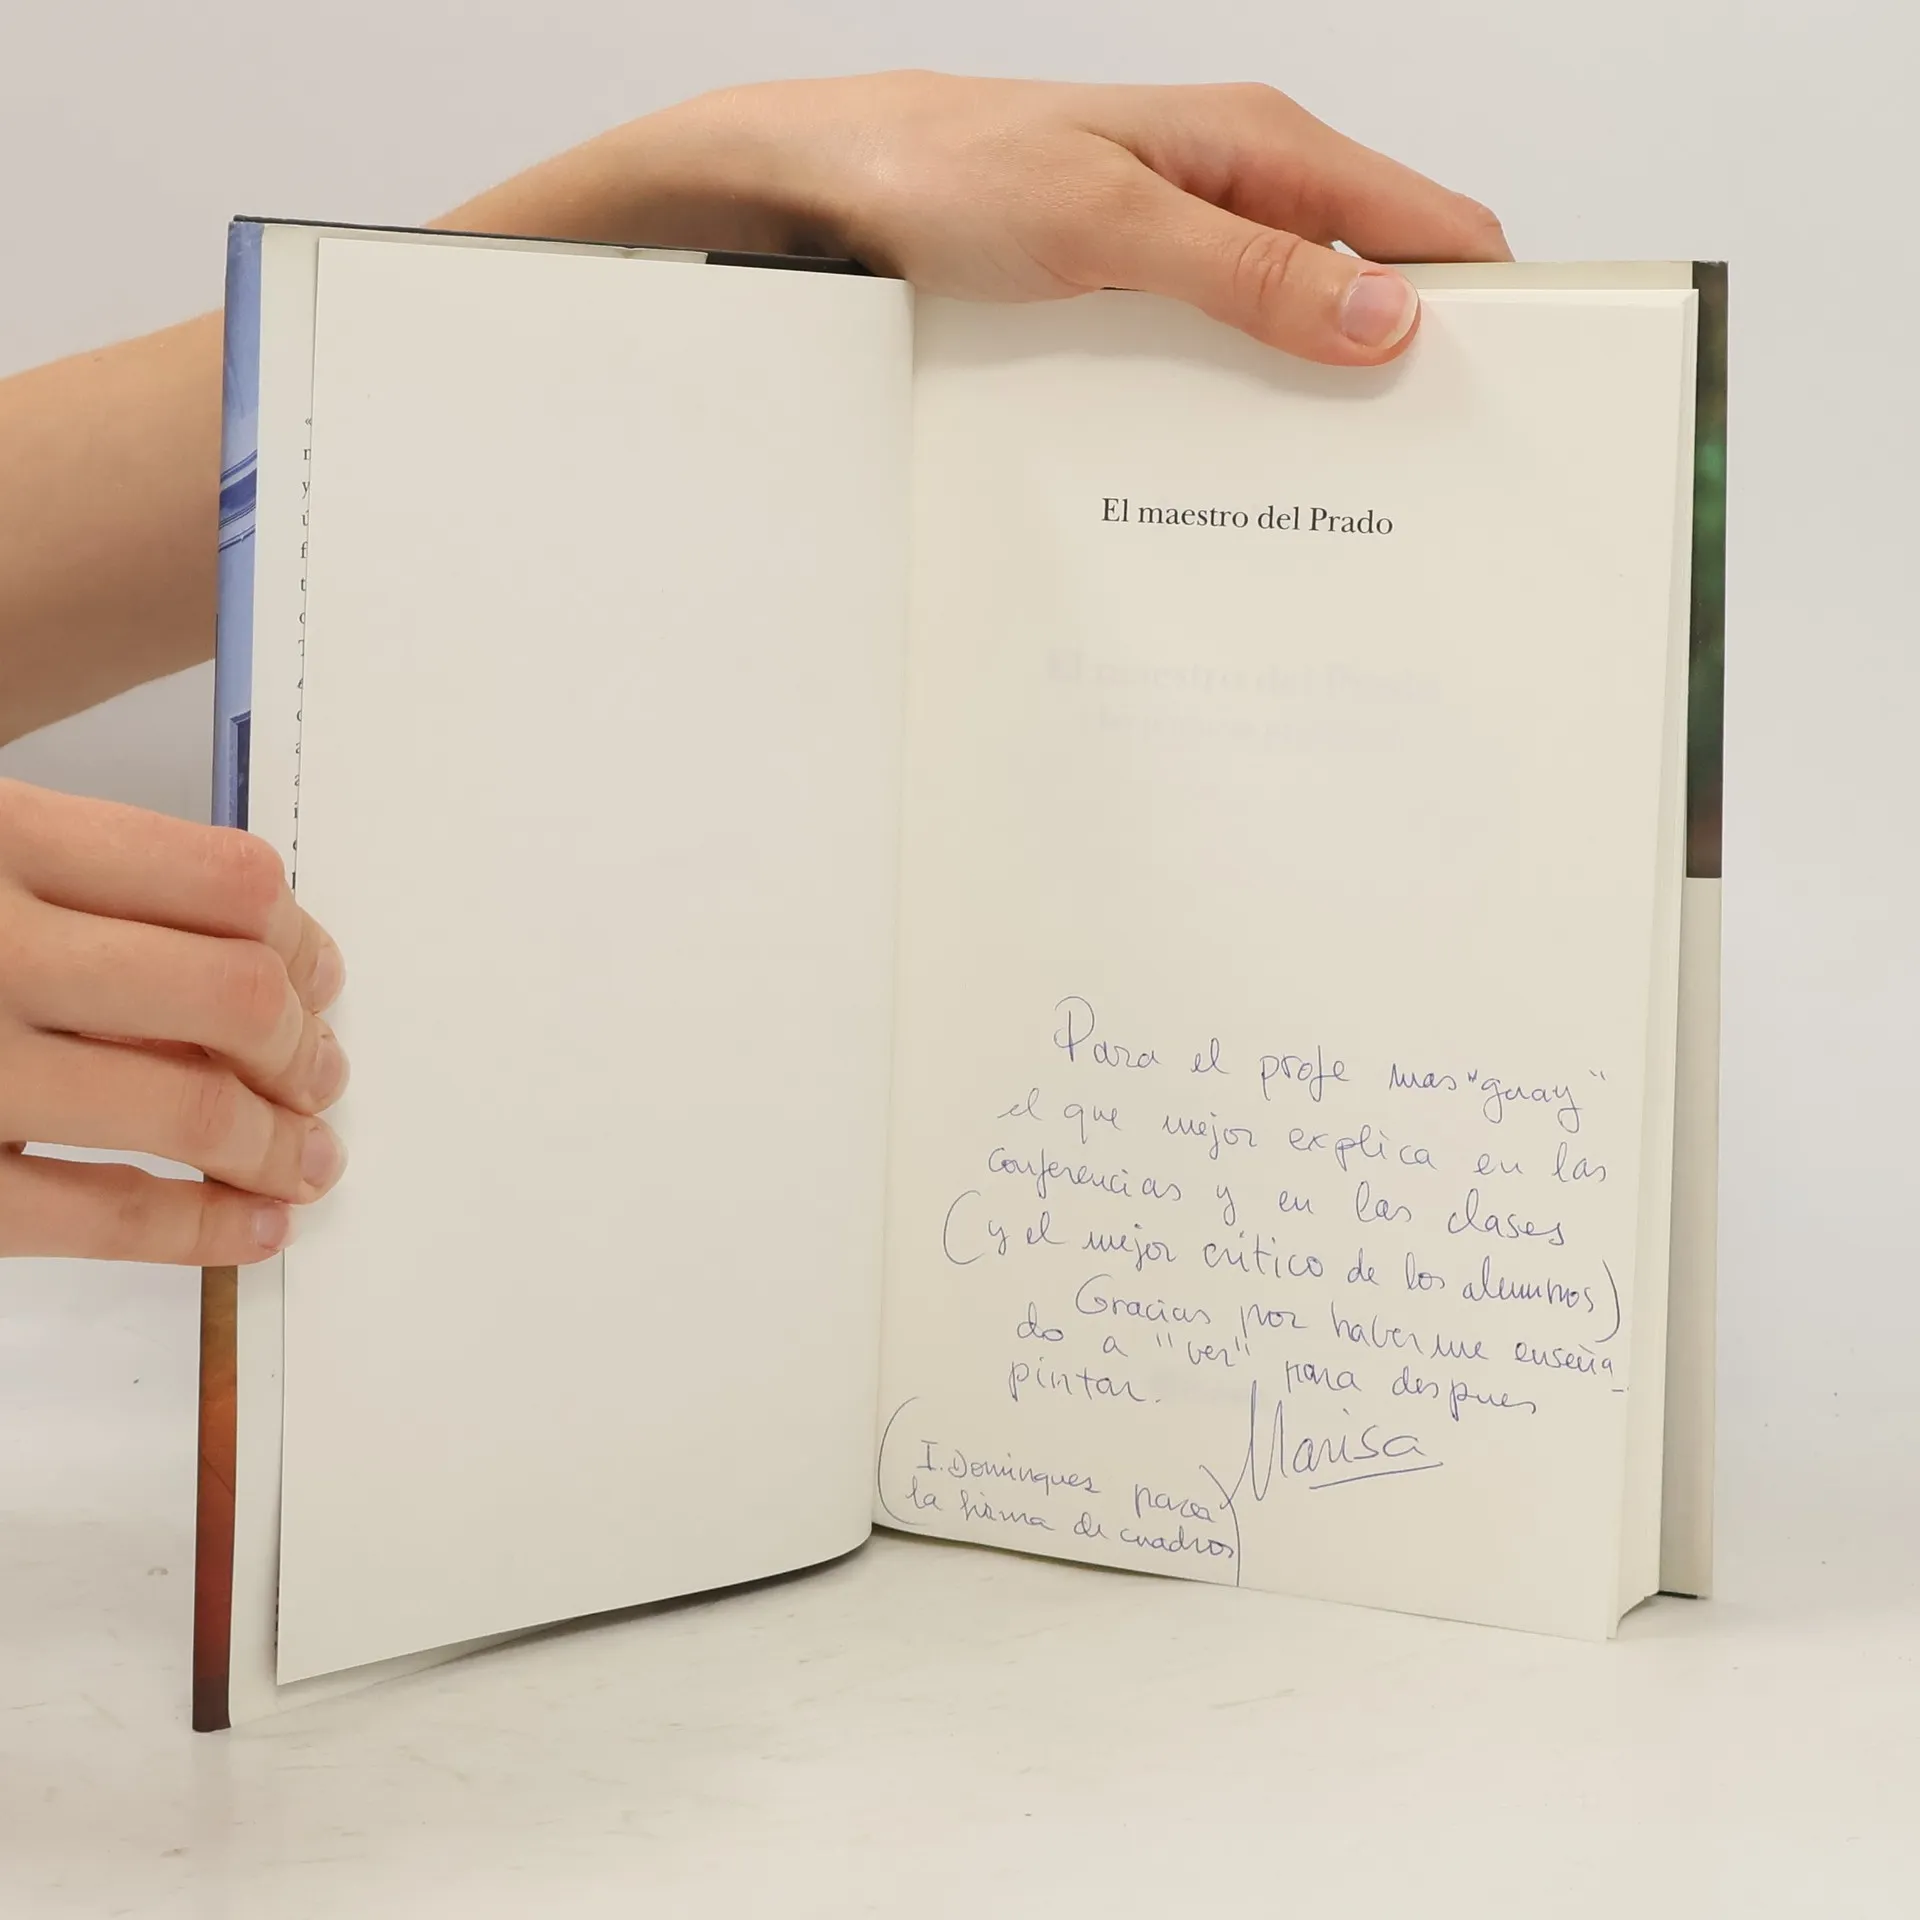 El maestro del Prado
Para el profe mas "guay"
el que mejor explica en las
conferencias y en las clases
(y el mejor crítico de los alumnos)
Gracias por haberme enseña-
do a "ver" para despues
pintar.
Marisa
(I. Dominguez para
la firma de cuadros)